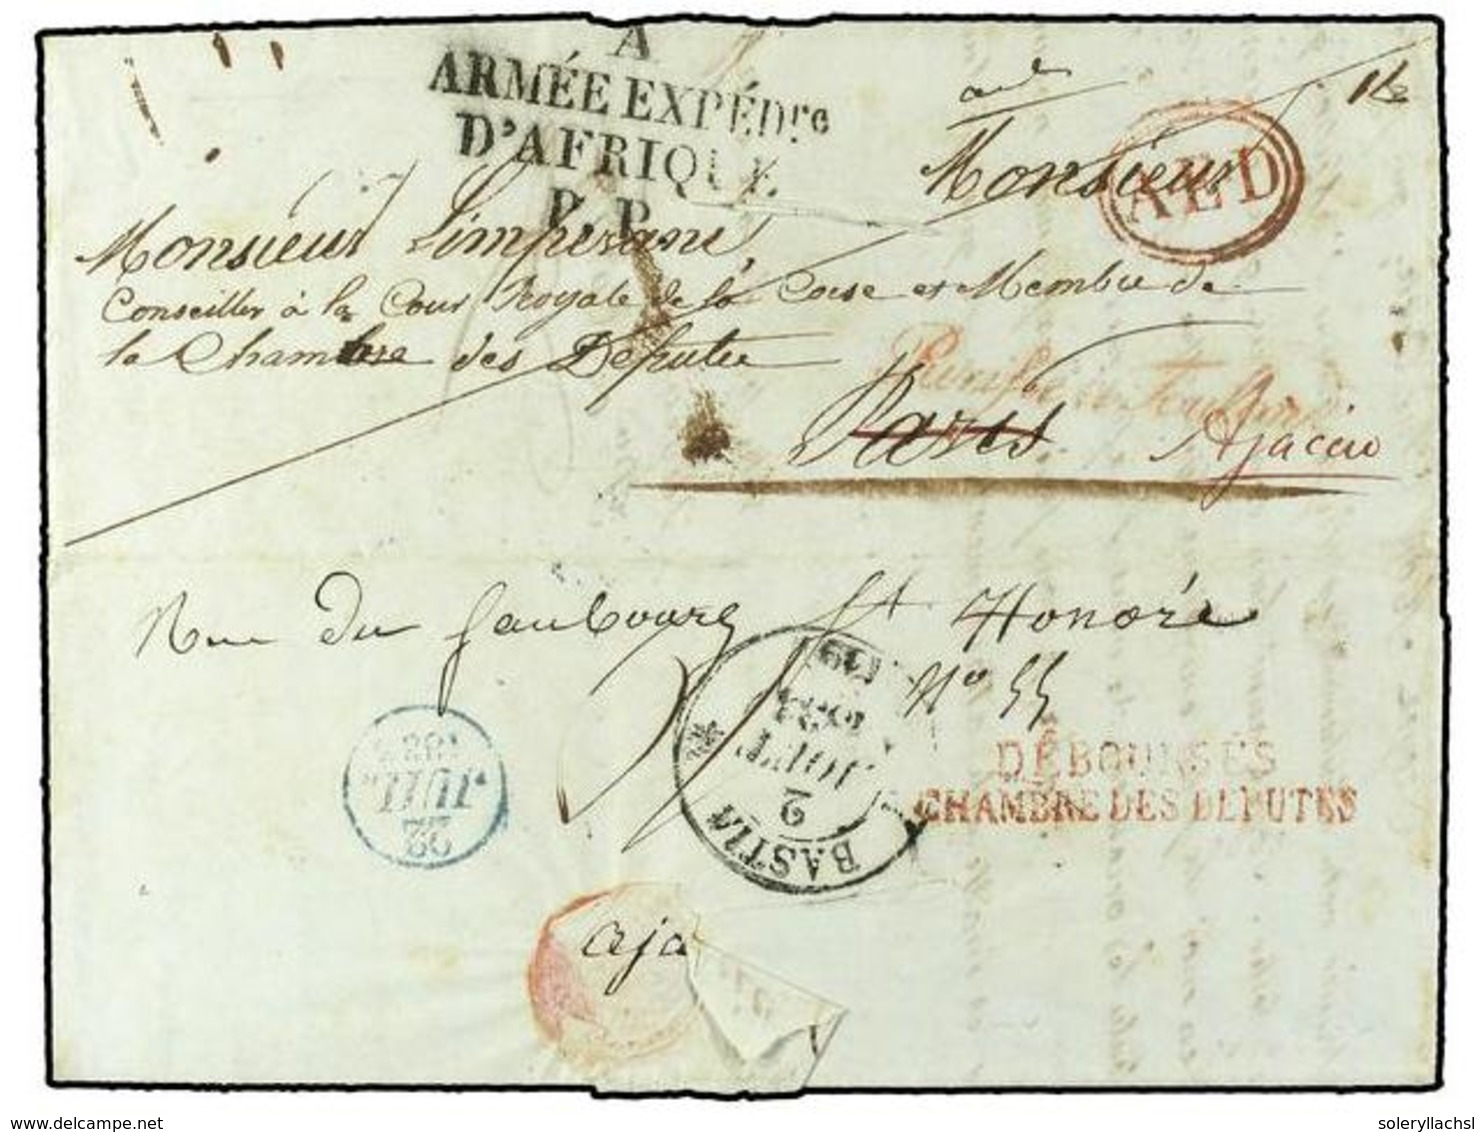 A
ARMÉE EXPÉDre
D'AFRIQUE
P. P.
Monsieur
A E D
Monsieur Limperani,
Conseiller à la Cour Royale de la Corse et Membre de
la Chambre des Députés
Paris Ajaccio
Rue du faubourg St Honoré
No 55
22
JUIL
BASTIA
2
DÉBOURSÉS
CHAMBRE DES DEPUTES
aja
delcampe.net
soleryllachsl